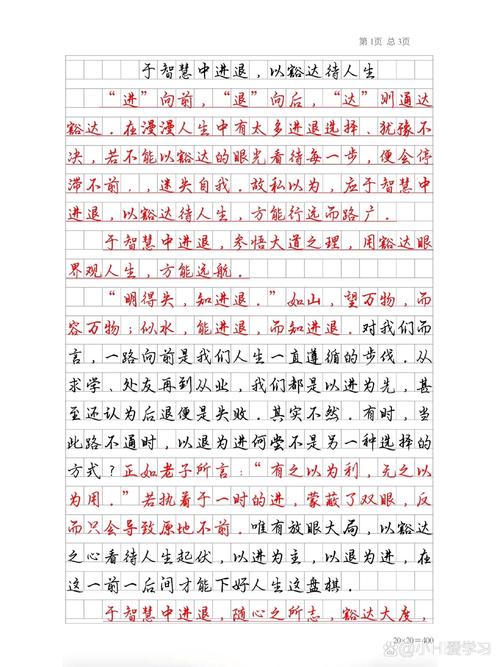 第1页 总3页
于智慧中进退，以豁达待人生
“进”向前，“退”向后，“达”则通达
豁达．在漫漫人生中有太多进退选择、犹豫不
决，若不能以豁达的眼光看待每一步，便会停
滞不前．，迷失自我．故私以为，应于智慧中
进退，以豁达待人生，方能行远而路广．
于智慧中进退，参悟大道之理，用豁达眼
界观人生，方能远航．
“明得失，知进退．”如山，望万物，而
容万物；似水，能进退，而知进退．对我们而
言，一路向前是我们人生一直遵循的步伐．从
求学、处友再到从业，我们都是以进为先，甚
至还认为后退便是失败．其实不然．有时，当
此路不通时，以退为进何尝不是另一种选择的
方式？正如老子所言：“有之以为利，无之以
为用．”若执着于一时的进，蒙蔽了双眼，反
而只会导致原地不前．唯有放眼大局，以豁达
之心看待人生起伏，以进为主，以退为进，在
这一前一后间才能下好人生这盘棋．
于智慧中进退，随心之所志，豁达大度，
20×20=400
@小H爱学习